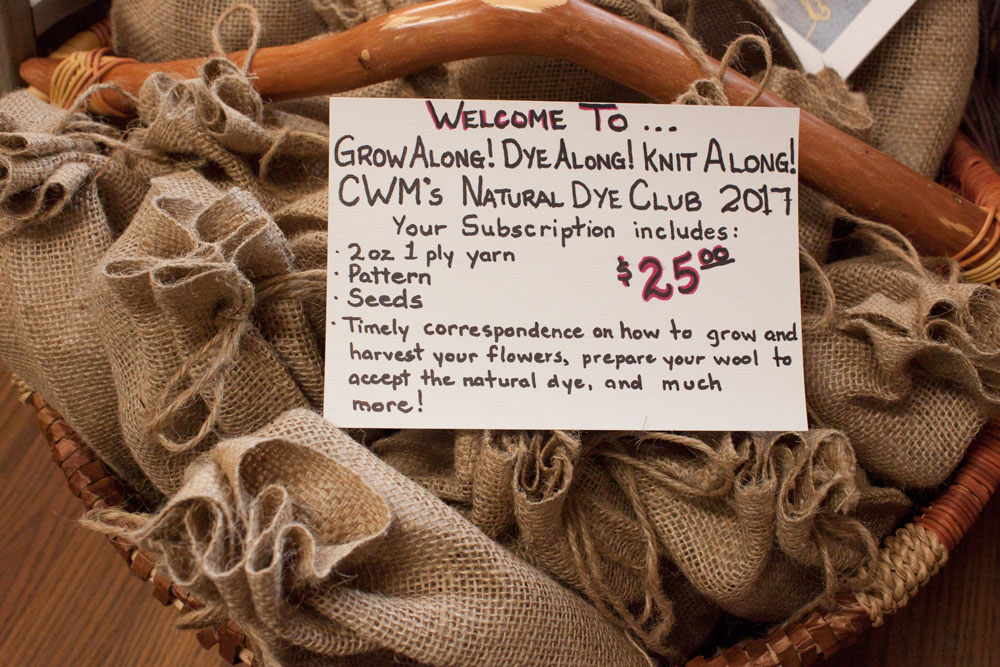 WELCOME TO ...
GROW ALONG! DYE ALONG! KNIT ALONG!
CWM'S NATURAL DYE CLUB 2017
Your Subscription includes:
· 2oz 1 ply yarn
· Pattern
· Seeds
$25.00
· Timely correspondence on how to grow and
harvest your flowers, prepare your wool to
accept the natural dye, and much
more!